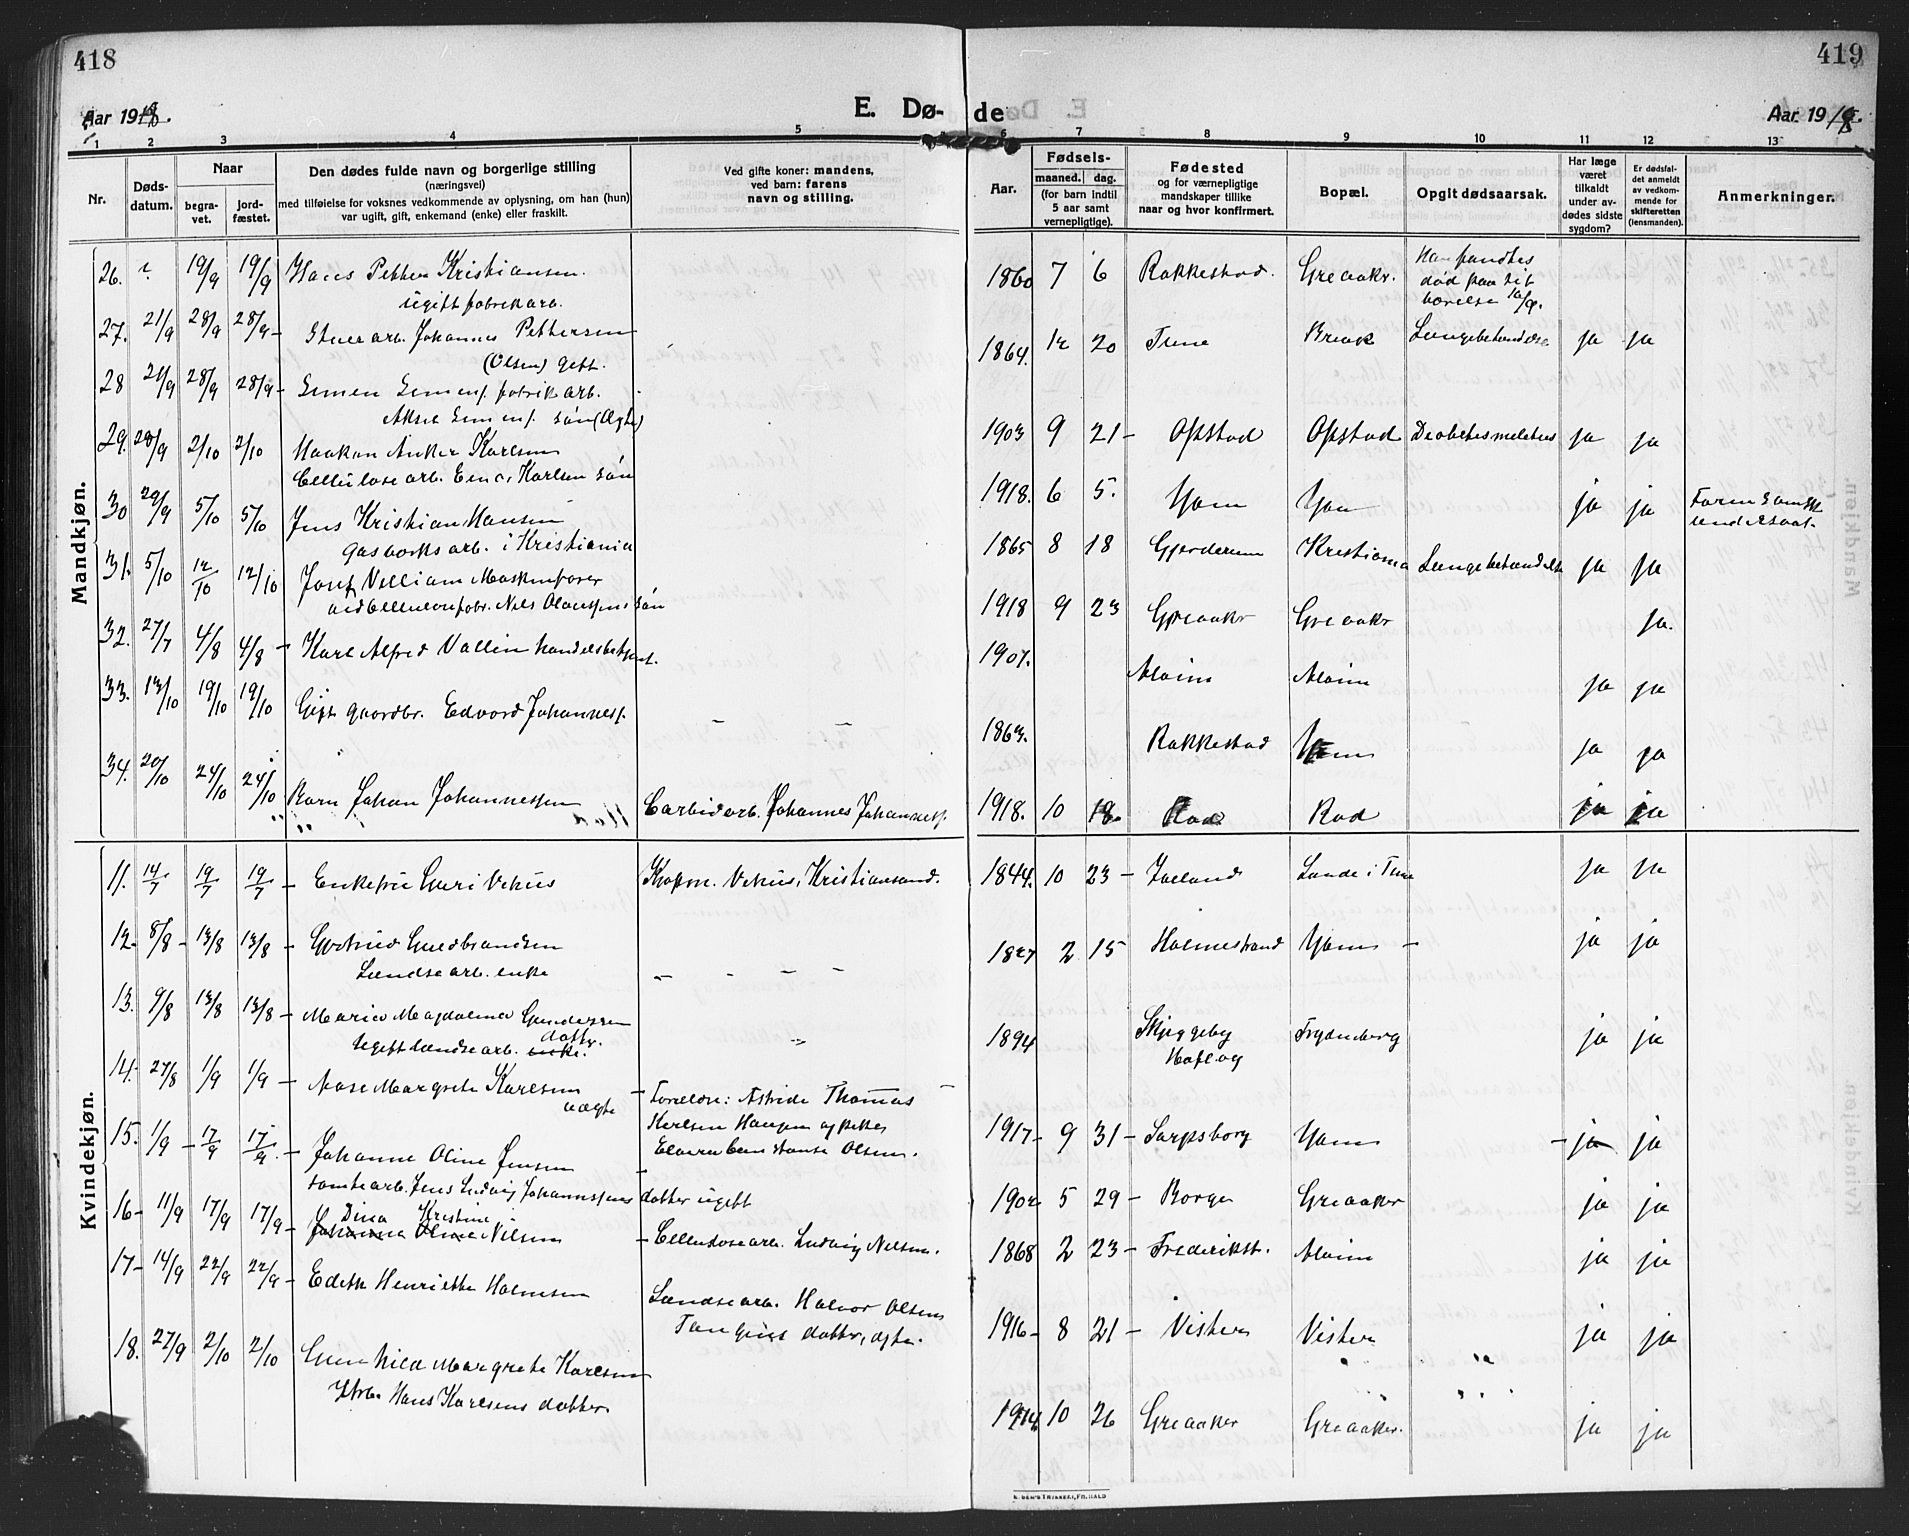 418
419
Aar 1918.
E. Dø-
de
Aar 1918.
1 2 3 4 5 6 7 8 9 10 11 12 13
Nr.
Døds-
datum.
Naar
begra-
vet.
jord-
fæstet.
Den dødes fulde navn og borgerlige stilling
(næringsvei)
med tilføielse for voksnes vedkommende av oplysning, om han (hun)
var ugift, gift, enkemand (enke) eller fraskilt.
Ved gifte koner: mandens,
ved barn: farens
navn og stilling.
Aar.
Fødsels-
maaned. dag.
(for barn indtil
5 aar samt
vernepligtige).
Fødested
og for værnepligtige
mandskaper tillike
naar og hvor konfirmert.
Bopæl.
Opgit dødsaarsak.
Har læge
været
tilkaldt
under av-
dødes sidste
sygdom?
Er dødsfal-
det anmeldt
av vedkom-
mende for
skifteretten
(lensmanden).
Anmerkninger.
Mandkjøn.
26. ? 19/9 19/9 Hans Petter Kristiansen.
ugift fabrikarb.
1860 7 6 Rakkestad. Greaaker. Han fandtes
død paa sit
værelse 10/9.
27. 21/9 28/9 28/9 - Stuearb. Johannes Pettersen
(Olsen) gift.
1864. 12 20 Tune Break Lungebetændelse ja ja
28 21/9 28/9 28/9 - Simen Simens. fabrikarb.
Aksel Simens. søn (Ægte)
1903 9 21 - Opstad Opstad Diabetes melitus ja ja
29. 28/9 2/10 2/10 Haakon Anker Karlsen
Cellulosearb. Einar Karlsen søn
1918. 6 5. Yven Yven ja ja
30 29/9 5/10 5/10 Jens Kristian Hansen
Gasverksarb. i Kristiania
1865 8 18 Gjerdrum Kristiania Lungebetændelse ja ja
31. 5/10 12/10 12/10 Josef Villiam Maskinfører
ved Cellulosefabr. Nils Olaussens søn
1918 9 23 Greaaker Greaaker ja.
32. 27/7 4/8 4/8 - Karl Alfred Vallin handelsbetjent.
1907. Alvim Alvim ja ja
33. 13/10 19/10 19/10 Gift gaardbr. Edvard Johanness. - -
1863. Rakkestad Yven ja ja
34. 20/10 24/10 24/10 Barn Johan Johannessen Carbidarb. Johannes Johanness.
1918. 10 18. Rød Rød ja ja
Kvindekjøn.
11. 14/7 19/7 19/7 - Enkefru Guri Vehus Kapt. Vehus, Kristiansand.
1844. 10 23 - Jælland Lande i Tune ja ja
12. 8/8 - 13/8 13/8 - Gertrud Guldbrandsen
Lændsearb. enke - - - -
1827 2 15 Holmestrand Yven - ja ja
13. 9/8 13/8 13/8 - Maria Magdalena Gundersen
ugift lændsearb. enke. datter. "
1894 Skjeggeby
Hafslog Frydenberg ja ja
14. 27/8 1/9 1/9 - Aase Margrete Karlsen
uægte - Forældre: Astride Thomas
Karlsen Haugen og pike
Elvira Constanse Olsen.
1917 - 9 31 - Sarpsborg Yven - ja ja
15. 1/9 - 17/9 17/9. - Johanne Oline Jensen
tomtearb. Jens Ludvig Johannessens datter ugift
1902 5 29 - Borge Greaaker ja ja
16 - 11/9 17/9 17/9 - Dina Kristine
Johanna Oline Nilsen - Cellulosearb. Ludvig Nilsen.
1868 2 23 - Frederikst. Alvim ja ja
17 - 14/9 22/9 22/9 - Edith Henriette Halvorsen
Lændsearb. Halvor Olsen
datter, ægte.
1916 - 8 21 - Visteren Visteren ja ja
18. 27/9 2/10 2/10 Gunhild Margrete Karlsen
Hans Karlsens datter.
1914 10 26 Greaaker Greaaker. ja ja